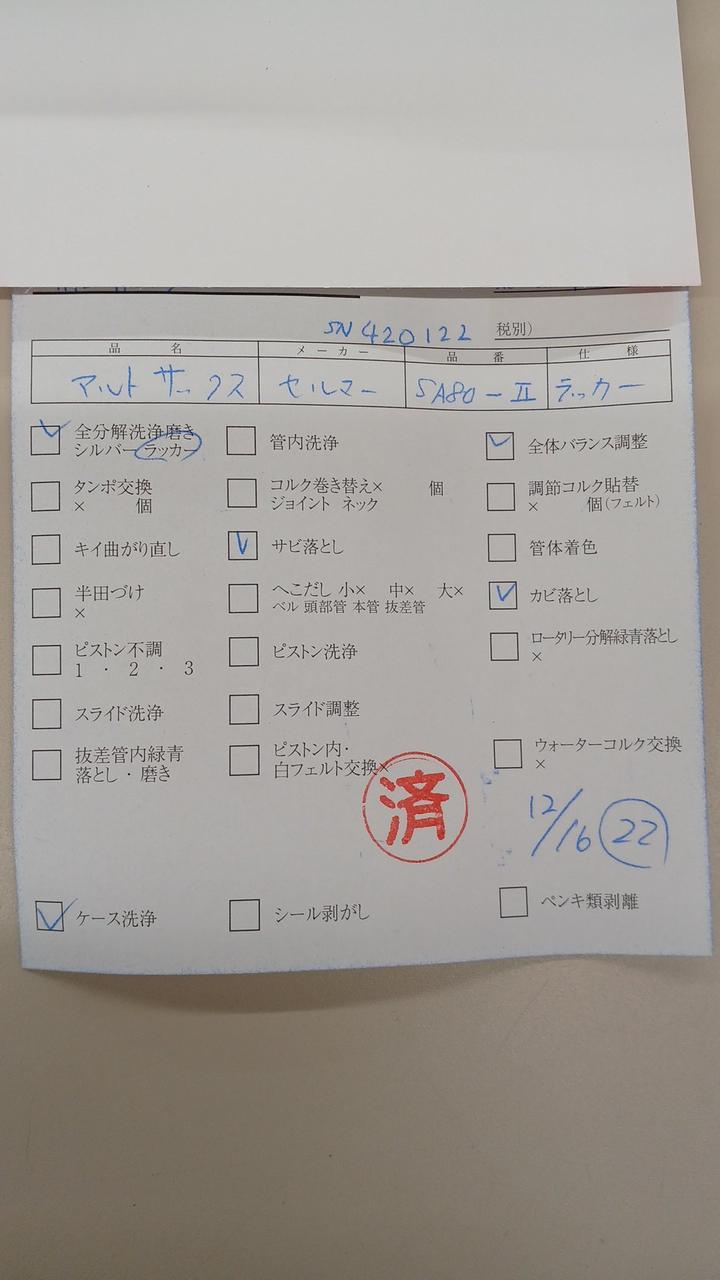 SN 420122 税別)
品名 メーカー 品番 仕様
アルトサックス セルマー SA80-II ラッカー
全分解洗浄磨き
シルバー ラッカー
管内洗浄
全体バランス調整
タンポ交換
× 個
コルク巻き替え× 個
ジョイント ネック
調節コルク貼替
× 個(フェルト)
キイ曲がり直し
サビ落とし
管体着色
半田づけ
×
へこだし 小× 中× 大×
ベル 頭部管 本管 抜差管
カビ落とし
ピストン不調
1 ・ 2 ・ 3
ピストン洗浄
ロータリー分解緑青落とし
×
スライド洗浄
スライド調整
抜差管内緑青
落とし・磨き
ピストン内・
白フェルト交換×
ウォーターコルク交換
×
済
12/16 22
ケース洗浄
シール剥がし
ペンキ類剥離